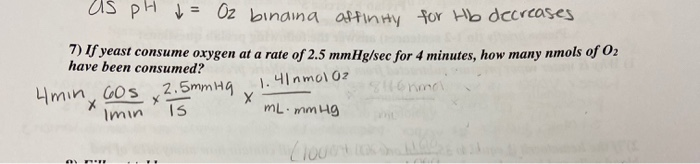 as pH ↓ = O2 binding affinity for Hb decreases
7) If yeast consume oxygen at a rate of 2.5 mmHg/sec for 4 minutes, how many nmols of O2
have been consumed?
4min × 60s/1min × 2.5mmHg/1s × 1.41nmol O2/mL·mmHg